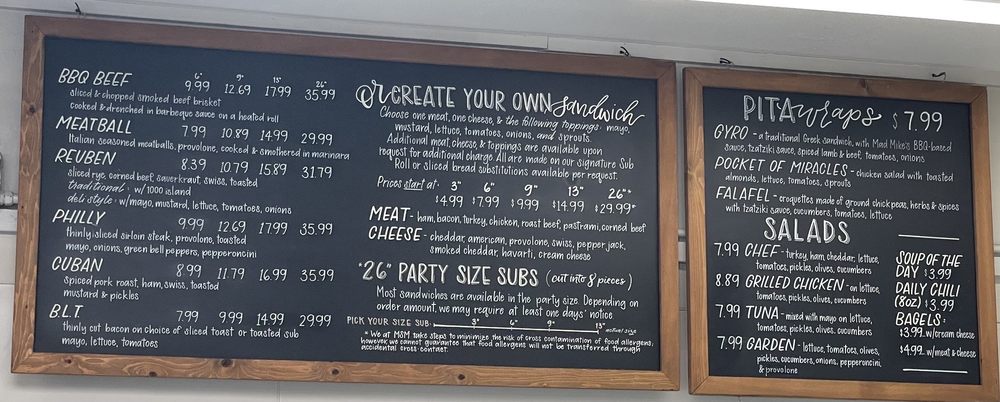 6" 9" 13" 26"
BBQ BEEF 9.99 12.69 17.99 35.99
sliced & chopped smoked beef brisket
cooked & drenched in barbeque sauce on a heated roll
MEATBALL 7.99 10.89 14.99 29.99
Italian seasoned meatballs, provolone, cooked & smothered in marinara
REUBEN 8.39 10.79 15.89 31.79
sliced rye, corned beef, sauerkraut, swiss, toasted
traditional: w/1000 island
deli style: w/mayo, mustard, lettuce, tomatoes, onions
PHILLY 9.99 12.69 17.99 35.99
thinly sliced sirloin steak, provolone, toasted
mayo, onions, green bell peppers, pepperoncini
CUBAN 8.99 11.79 16.99 35.99
spiced pork roast, ham, swiss, toasted
mustard & pickles
B.L.T. 7.99 9.99 14.99 29.99
thinly cut bacon on choice of sliced toast or toasted sub
mayo, lettuce, tomatoes
or CREATE YOUR OWN sandwich
Choose one meat, one cheese, & the following toppings: mayo,
mustard, lettuce, tomatoes, onions, and sprouts.
Additional meat, cheese & toppings are available upon
request for additional charge. All are made on our signature Sub
Roll or sliced bread substitutions available per request.
Prices start at: 3" 6" 9" 13" 26"*
$4.99 $7.99 $9.99 $14.99 $29.99*
MEAT - ham, bacon, turkey, chicken, roast beef, pastrami, corned beef
CHEESE - cheddar, american, provolone, swiss, pepper jack,
smoked cheddar, havarti, cream cheese
*26" PARTY SIZE SUBS (cut into 8 pieces)
Most sandwiches are available in the party size. Depending on
order amount, we may require at least one days' notice
PICK YOUR SIZE SUB: 3" 6" 9" 13" actual size
* We at M&M take steps to minimize the risk of cross contamination of food allergens;
however, we cannot guarantee that food allergens will not be transferred through
accidental cross-contact.
PITA wraps $7.99
GYRO - a traditional Greek sandwich, with Mad Mike's BBQ-based
sauce, tzatziki sauce, spiced lamb & beef, tomatoes, onions
POCKET OF MIRACLES - chicken salad with toasted
almonds, lettuce, tomatoes, sprouts
FALAFEL - croquettes made of ground chick peas, herbs & spices
with tzatziki sauce, cucumbers, tomatoes, lettuce
SALADS
7.99 CHEF - turkey, ham, cheddar, lettuce,
tomatoes, pickles, olives, cucumbers
8.89 GRILLED CHICKEN - on lettuce,
tomatoes, pickles, olives, cucumbers
7.99 TUNA - mixed with mayo on lettuce,
tomatoes, pickles, olives, cucumbers
7.99 GARDEN - lettuce, tomatoes, olives,
pickles, cucumbers, onions, pepperoncini,
& provolone
SOUP OF THE
DAY $3.99
DAILY CHILI
(8oz) $3.99
BAGELS:
$3.99 w/cream cheese
$4.99 w/meat & cheese